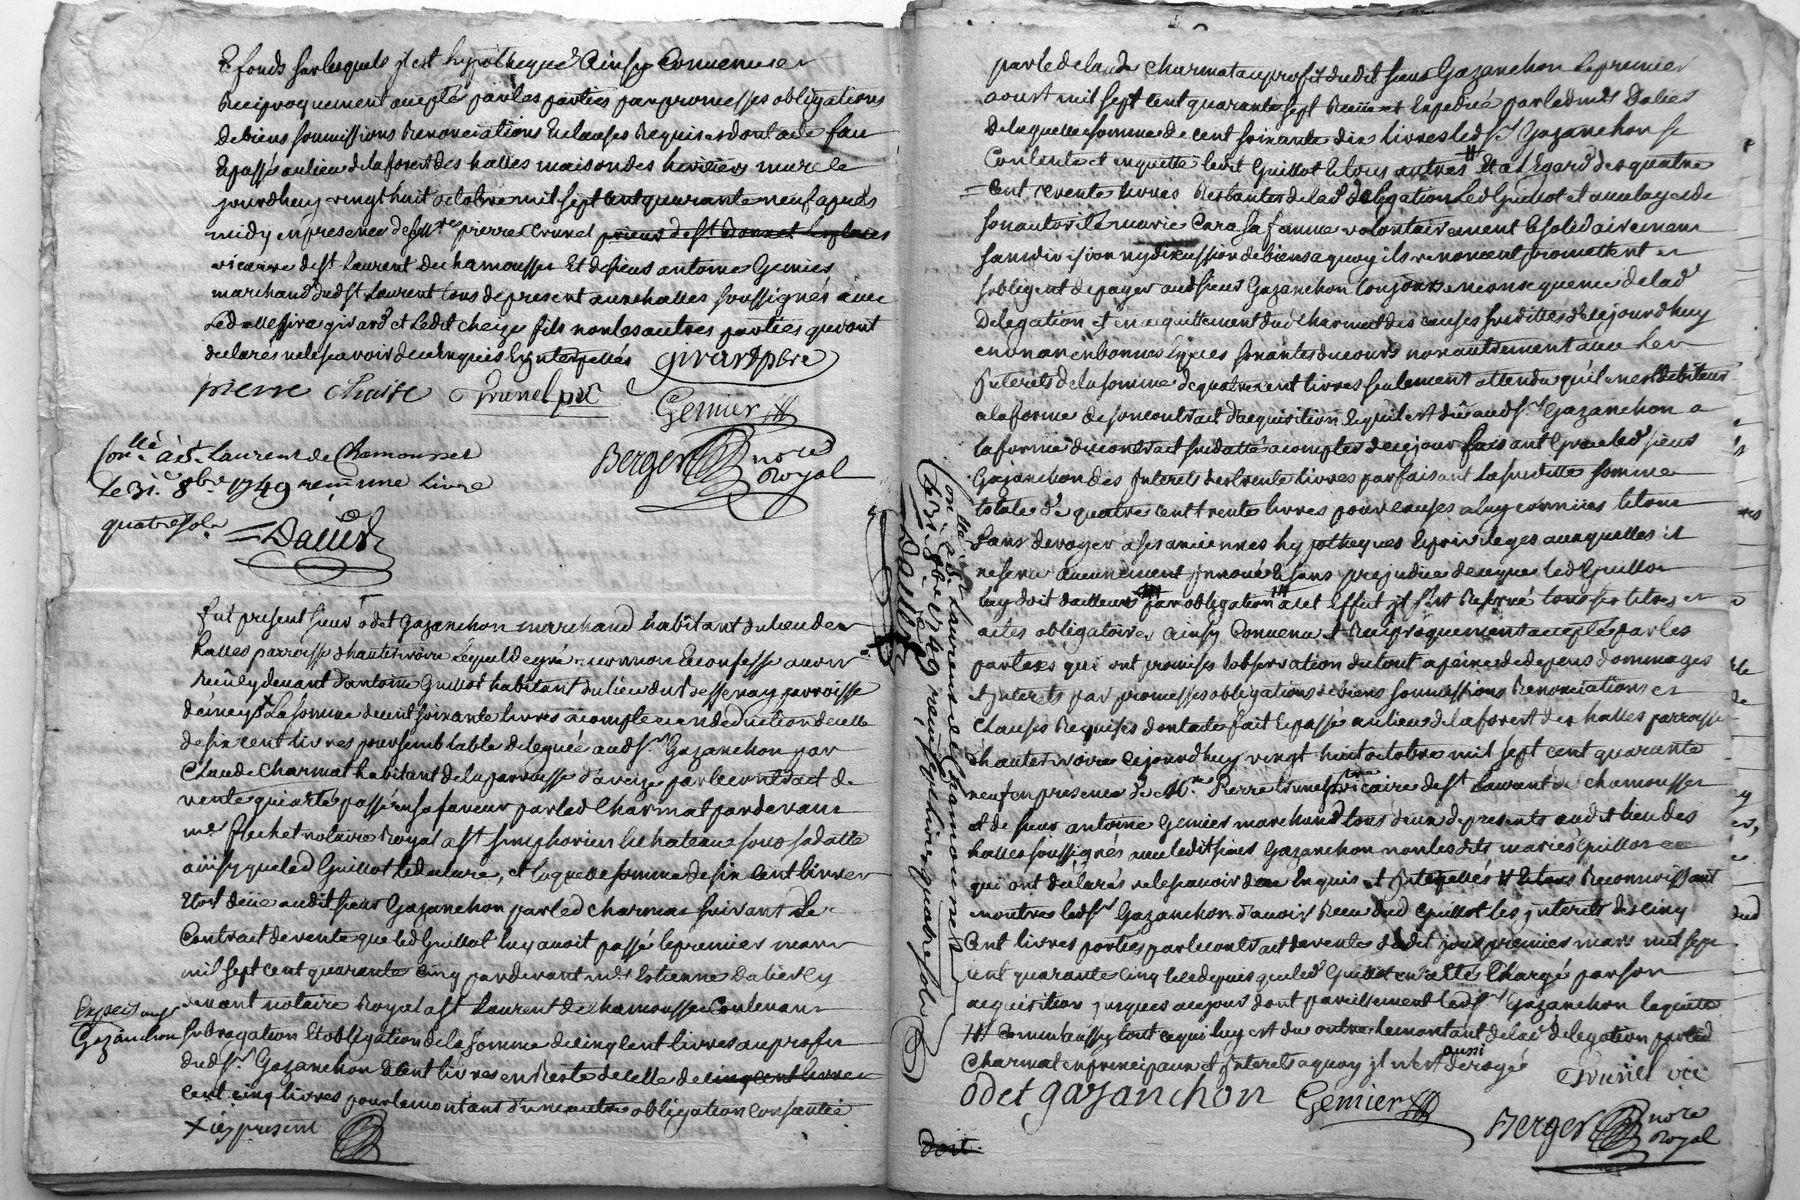 & fonds sur lesquels jl est hypothequé Ainsy Convenu et
Reciproquement accepté par les parties par promesses obligations
de biens soumissions Renonciations & clauses Requises dont acte fait
& passé au lieu de la forest des halles maison des heritiers
jourdhuy vingt huit octobre mil sept cent quarante neuf apres
midy en presence de Mre pierre Brunel
vicaire de st Laurent de chamousset Et de sieur antoine Gemier
marchand dud st Laurent tous de present aux halles soussignés avec
girard et Ledit fils non les autres parties qui ont
declarés ne le scavoir de ce Enquis & jnterpellés girard pbre
pierre Chaise Brunel vic
Gemier
Berger nore Royal
Conllé à st Laurent de Chamousset
Le 31e 8bre 1749 reçu une Livre
quatre sols
Dalier
fut present sieur odet Gazanchon marchand habitant du lieu des
halles parroisse d'hauterivoire Lequel de gré Reconnoi & confesse avoir
Receu cy devant d'antoine Guillot habitant du lieu du parroisse
x La somme de cent soixante livres a compte & en deduction de celle
de six cent livres pour semblable deleguée aud sr Gazanchon par
Claude Charmat habitant de la parroisse d'aveize par le contract de
vente qui a eté passé en sa faveur par led Charmat pardevant
me flechet notaire Royal a st simphorien le chateau sous sa datte
ainsy que led Guillot Le declare, et Laquelle somme de six Cent livres
Etoit düe audit sieur Gazanchon par led Charmat suivant Le
Contract de vente que led Guillot luy avoit passé le premier mars
mil sept cent quarante cinq pardevant me Estienne Dalier cy
devant notaire Royal a st Laurent de chamousset Contenant
subrogation & obligation de la somme de cinq cent livres au profit
dud sr Gazanchon & Cent livres en Reste de celle de cinq cent livres
cent cinq livres pour le montant d'une autre obligation consentie
x icy present
Gazanchon
par led claude Charmat au profit dudit sieur Gazanchon Le premier
aoust mil sept cent quarante sept Receüe et Expediée par led me Dalier
De laquelle somme de cent soixante dix livres led sr Gazanchon se
Contente et en quitte ledit Guillot & tous autres # Et a l'Egard des quatre
Cent trente livres Restantes de lad Delegation Led Guillot et
son autorité marie Cara sa femme volontairement & solidairement
sans division ny discussion de biens a quoy ils renoncent promettent et
s'obligent de payer aud sieur Gazanchon toujours en consequence de lad
Delegation et en acquittement dud Charmat des causes susdittes dès ce jourdhuy
en un an en bonnes Especes sonantes du cours non autrement avec Les
jnterets de la somme de quatre cent livres seulement attendu qu'il n'est debiteur
a la forme de son contract d'acquisition & qu'il est dû aud sr Gazanchon a
la forme du contract susdatté a compter de ce jour faisant Grace led sieur
Gazanchon des jnterets des trente livres parfaisant La susditte somme
totale de quatre cent trente livres pour causes a luy connües le tout
sans deroger a ses anciennes hypotheques & privileges auxquelles il
n'est aucunement jnnové & sans prejudice de ce que led Guillot
luy doit d'ailleurs par obligation a cet Effet jl s'est Reservé tous ses titres et
actes obligatoires Ainsy Convenu & Reciproquement accepté par les
parties qui ont promises l'observation du tout a peine de depens dommages
& jnterets par promesses obligations de biens soumissions Renonciations et
Clauses Requises dont acte fait & passé au lieu de la forest des halles parroisse
d'hauterivoire cejourdhuy vingt huit octobre mil sept cent quarante
neuf en presence de Mre Pierre Brunel pbre vicaire de st Laurent de chamousset
et de sieur antoine Gemier marchand tous deux de presents audit lieu des
halles soussignés avec ledit sieur Gazanchon non lesdits mariés Guillot
qui ont declarés ne le scavoir de ce Enquis & jnterpellés Reconnoissant
led sr Gazanchon d'avoir Receu dud Guillot les jnterets des cinq
Cent livres portées par le contract de vente dudit jour premier mars mil sept
cent quarante cinq que led Guillot chargé par son
acquisition jusques a ce jour dont pareillement led sr Gazanchon le quitte
# Comm'aussy tout ce qui luy est du outre le montant de lad delegation par led
Charmat en principaux et jnterets a quoy jl n'est aussi derogé Brunel vic
odet gazanchon Gemier
Berger nore Royal
doit
Conllé a st Laurent de Chamousset
Le 31e 8bre 1749 reçu livres quatre sols
Dalier